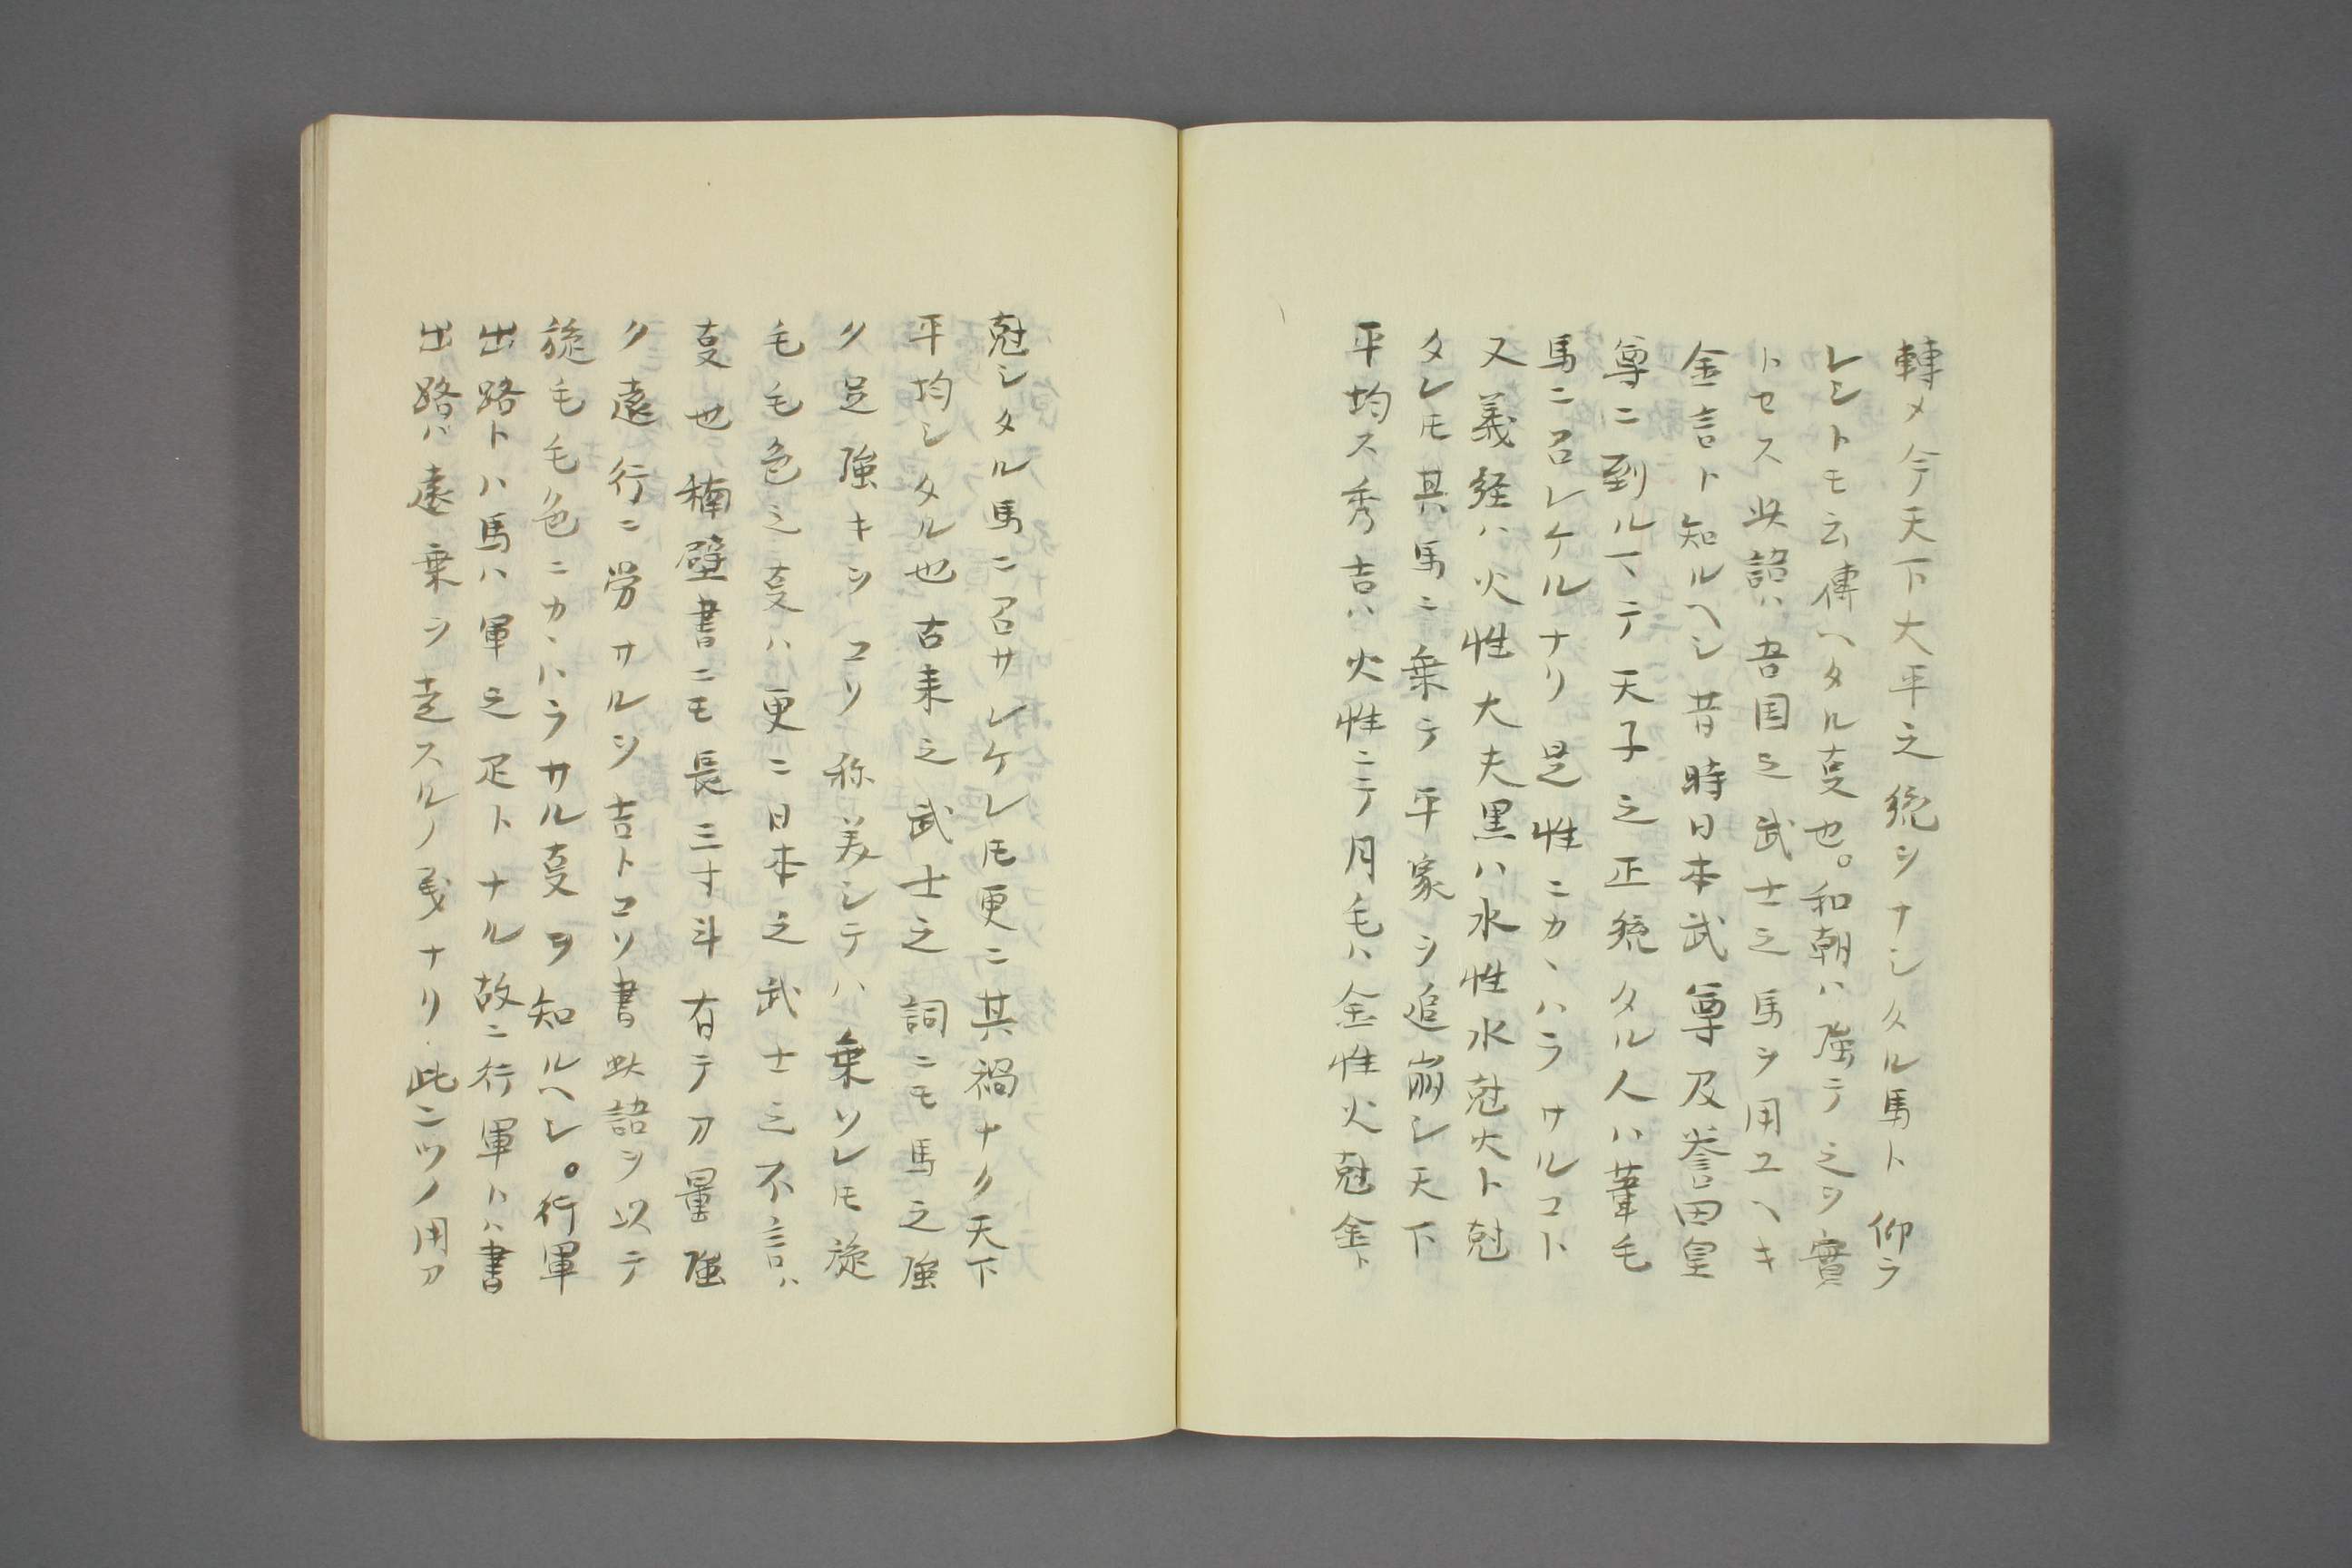 轉メ今天下大平之統ヲナシタル馬ト仰ラ
レシトモ云傳ヘタル叓也。和朝ハ強テ之ヲ實
トセス此語ハ吾国之武士之馬ヲ用ユヘキ
金言ト知ルヘシ昔時日本武尊及誉田皇
尊ニ到ルマテ天子之正統タル人ハ葦毛
馬ニ召レケルナリ是性ニカヽハラサルコト
又義経ハ火性大夫黒ハ水性水尅火ト尅
タレ𪜈其馬ニ乗テ平家ヲ追崩シ天下
平均ス秀吉ハ火性ニテ月毛ハ金性火尅金ト
尅シタル馬ニ召サレケレ𪜈更ニ其禍ナク天下
平均シタル也古来之武士之詞ニモ馬之強
ク足強キヲコソ称美シテハ乗ソレ𪜈旋
毛毛色之叓ハ更ニ日本之武士之不言ハ
叓也楠壁書ニモ長三寸斗有テ力量強
ク遠行ニ労サルヲ吉トコソ書此語ヲ以テ
旋毛毛色ニカヽハラサル叓ヲ知ルヘシ。行軍
出路トハ馬ハ軍之足トナル故ニ行軍トハ書
出路ハ遠乗ヲ走スルノ戔ナリ此二ツノ用力